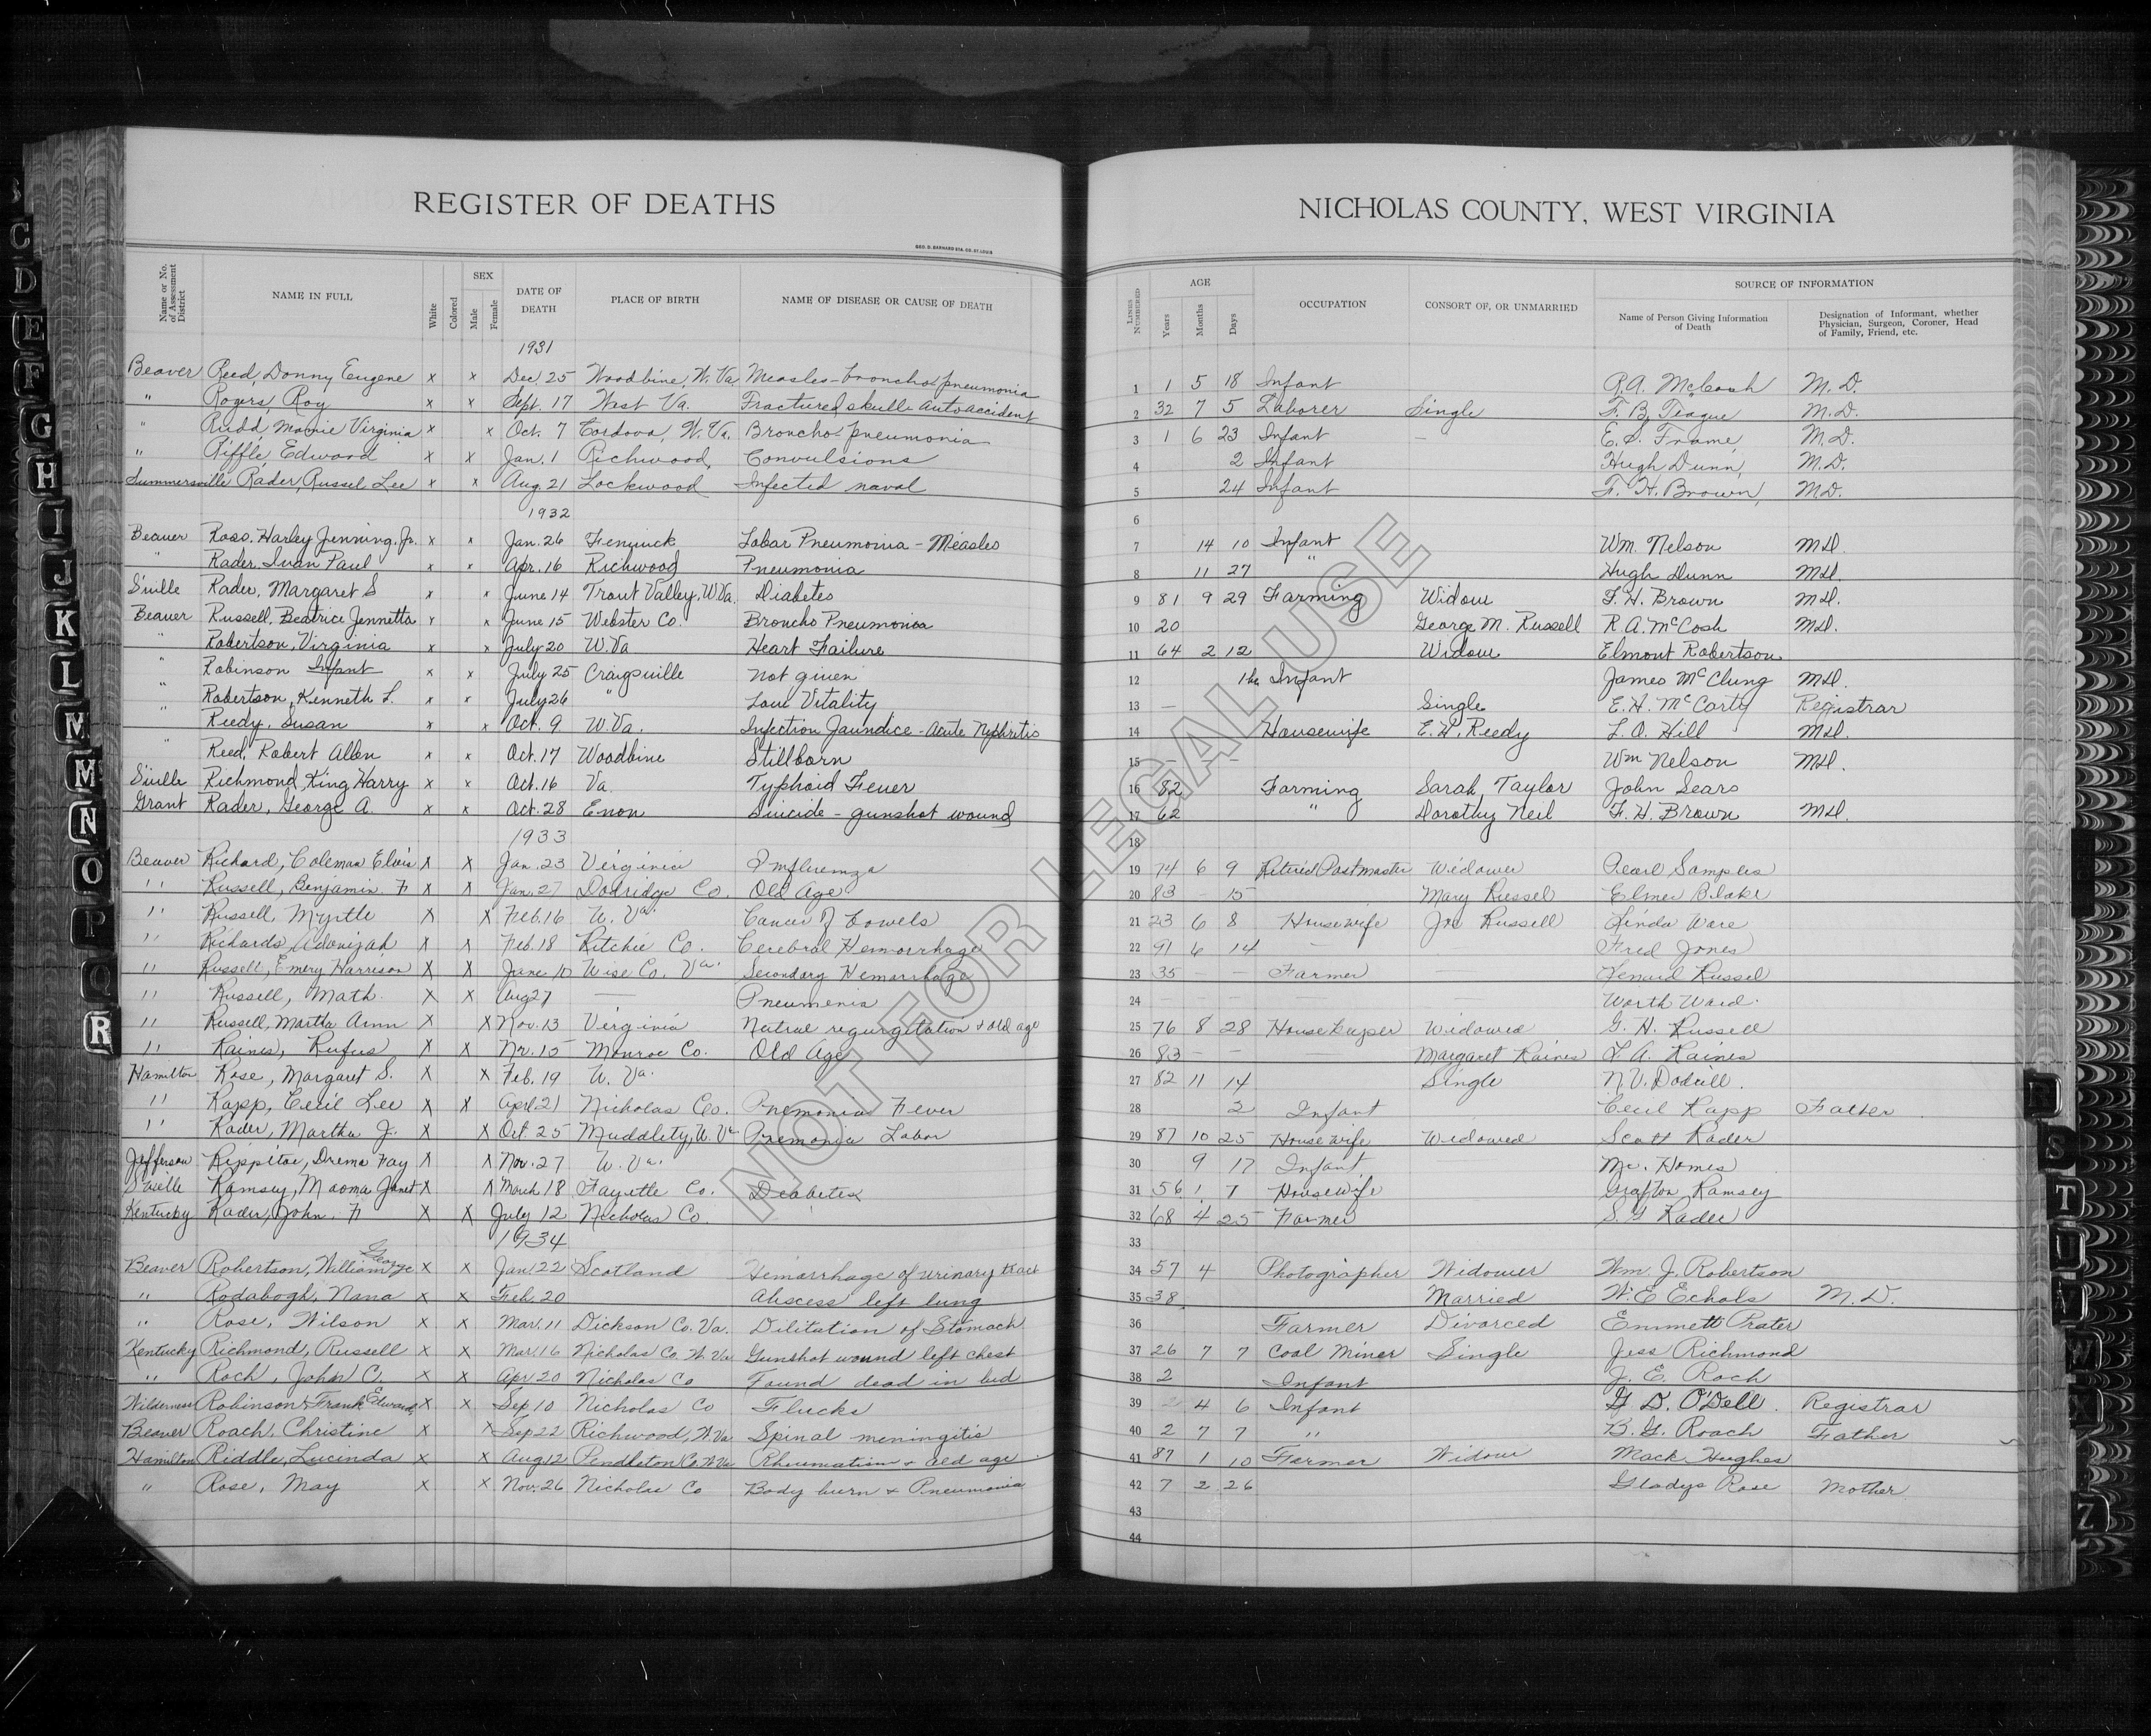 REGISTER OF DEATHS
GEO. D. BARNARD STA. CO. ST. LOUIS
NICHOLAS COUNTY, WEST VIRGINIA
Name or No. of Assessment District NAME IN FULL White Colored SEX Male Female DATE OF DEATH PLACE OF BIRTH NAME OF DISEASE OR CAUSE OF DEATH
LINES NUMBERED AGE Years Months Days OCCUPATION CONSORT OF, OR UNMARRIED SOURCE OF INFORMATION Name of Person Giving Information of Death Designation of Informant, whether Physician, Surgeon, Coroner, Head of Family, Friend, etc.
1931
Beaver Reed, Donny Eugene x x Dec. 25 Woodbine, W. Va. Measles-broncho pneumonia 1 1 5 18 Infant R.A. McCosh M.D.
" Rogers, Roy x x Sept. 17 West Va. Fractured skull auto accident 2 32 7 5 Laborer Single F. B. Teague M.D.
" Rudd, Mamie Virginia x x Oct. 7 Cordova, W. Va. Broncho pneumonia 3 1 6 23 Infant — E. S. Frame, M.D.
" Riffle Edward x x Jan. 1 Richwood, Convulsions 4 2 Infant Hugh Dunn, M.D.
Summersville Rader, Russel Lee x x Aug. 21 Lockwood Infected naval 5 24 Infant F. H. Brown, M.D.
1932 6
Beaver Ross, Harley Jenning, Jr. x x Jan. 26 Fenwick Lobar Pneumonia - Measles 7 14 10 Infant Wm. Nelson M.D.
" Rader, Ivan Paul x x Apr. 16 Richwood Pneumonia 8 11 27 " Hugh Dunn M.D.
S'ville Rader, Margaret S x x June 14 Trout Valley, W.Va. Diabetes 9 81 9 29 Farming Widow F. H. Brown M.D.
Beaver Russell, Beatrice Jennetta x x June 15 Webster Co. Broncho Pneumonia 10 20 George M. Russell R. A. McCosh M.D.
" Robertson, Virginia x x July 20 W.Va Heart Failure 11 64 2 12 Widow Elmont Robertson
" Robinson Infant x x July 25 Craigsville Not given 12 1 hr. Infant James McClung M.D.
" Robertson, Kenneth L. x x July 26 " Low Vitality 13 — Single E. H. McCarty Registrar
" Reedy, Susan x x Oct. 9 W.Va. Infection Jaundice - Acute Nephritis 14 Housewife E. H. Reedy L. O. Hill M.D.
" Reed, Robert Allen x x Oct. 17 Woodbine Stillborn 15 — — Wm Nelson M.D.
S'ville Richmond, King Harry x x Oct. 16 Va. Typhoid Fever 16 82 Farming Sarah Taylor John Sears
Grant Rader, George A. x x Oct. 28 Enon Suicide - gunshot wound 17 62 " Dorothy Neil F. H. Brown M.D.
1933 18
Beaver Richard, Coleman Elvis x x Jan. 23 Virginia Imfluenza 19 74 6 9 Retired Postmaster Widower Pearl Samples
" Russell, Benjamin F x x Jan. 27 Dodridge Co. Old Age 20 83 — 15 Mary Russel Elmer Blake
" Russell, Myrtle x x Feb. 16 W. Va. Cancer of bowels 21 23 6 8 Housewife Jno Russell Linda Ware
" Richards, Adonijah x x Feb. 18 Ritchie Co. Cerebral Hemorrhage 22 91 6 14 — Fred Jones
" Russell, Emery Harrison x x June 10 Wise Co. Va. Secondary Hemorrhage 23 35 — — Farmer Russel
" Russell, Math. x x Aug 27 — Pneumenia 24 Worth Ward.
" Russell, Martha Ann x x Nov. 13 Virginia regurgitation & old age 25 76 8 28 Housekeeper Widowed G. H. Russell
" Raines, Rufus x x Nv. 15 Monroe Co. Old Age 26 83 — — Margaret Raines L. A. Raines
Hamilton Rose, Margaret S. x x Feb. 19 W. Va. 27 82 11 14 Single N. V. Dodrill.
" Rapp, Cecil Lee x x Apr. 21 Nicholas Co. Pnemonia Fever 28 2 Infant Cecil Rapp Father.
" Rader, Martha J. x x Oct. 25 Muddlety, W. Va. Pnemonia Lobar 29 87 10 25 Housewife Widowed Scott Rader
Jefferson Rippitoe, Drema Fay x x Nov. 27 W. Va. 30 9 17 Infant Mr. Homes
S'ville Ramsey, Maoma Janet x x March 18 Fayette Co. Diabetes 31 56 1 7 Housewife Grafton Ramsey
Kentucky Rader, John F x x July 12 Nicholas Co. 32 68 4 25 Farmer Rader
1934 33
Beaver Robertson, William George x x Jan. 22 Scotland Hemorrhage of urinary tract 34 57 4 Photographer Widower Wm. J. Robertson
" Rodabogh, Nana x x Feb. 20 Abscess left lung 35 38 Married W. E Echols M. D.
" Rose, Wilson x x Mar. 11 Dickson Co. Va. Dilitation of Stomach 36 Farmer Divorced Emmett Prater
Kentucky Richmond, Russell x x Mar. 16 Nicholas Co. W. Va Gunshot wound left chest 37 26 7 7 Coal Miner Single Jess Richmond
" Roch, John C. x x Apr. 20 Nicholas Co Found dead in bed 38 2 Infant J. E. Roch
Wilderness Robinson, Frank Edward, x x Sep 10 Nicholas Co Flucks 39 4 6 Infant G D. O'Dell. Registrar
Beaver Roach, Christine x x Sep 22 Richwood, W. Va Spinal meningitis 40 2 7 7 " B. G. Roach Father
Hamilton Riddle, Lucinda x x Aug 12 Pendleton Co. W. Va Rheumatism & old age 41 87 1 10 Farmer Widow Mack Hughes
" Rose, May x x Nov. 26 Nicholas Co Body burn & Pneumonia 42 7 2 26 Gladys Rose Mother
43
44
NOT FOR LEGAL USE
C
D
E
F
G
H
I
J
K
L
M
N
O
P
Q
R
R
S
T
U
V
W
X
Z